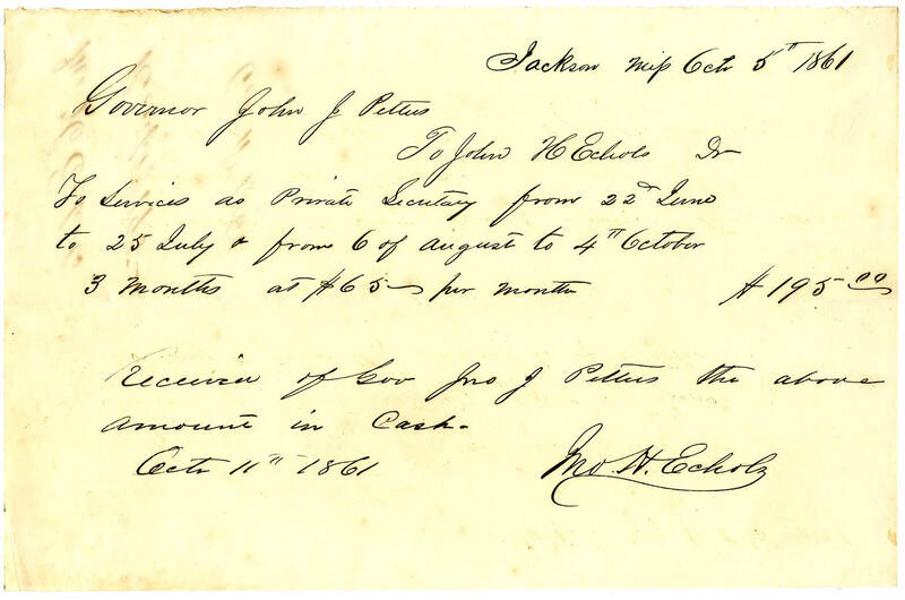 Jackson Miſs Octr 5th 1861
Governor John J Pettus
To John H Echols Dr
To Services as Private Secretary from 22d June
to 25 July & from 6 of August to 4th October
3 months at $65 per month $195.00
Received of Gov Jno J Pettus the above
amount in Cash.
Octr 11th 1861 Jno. H. Echols